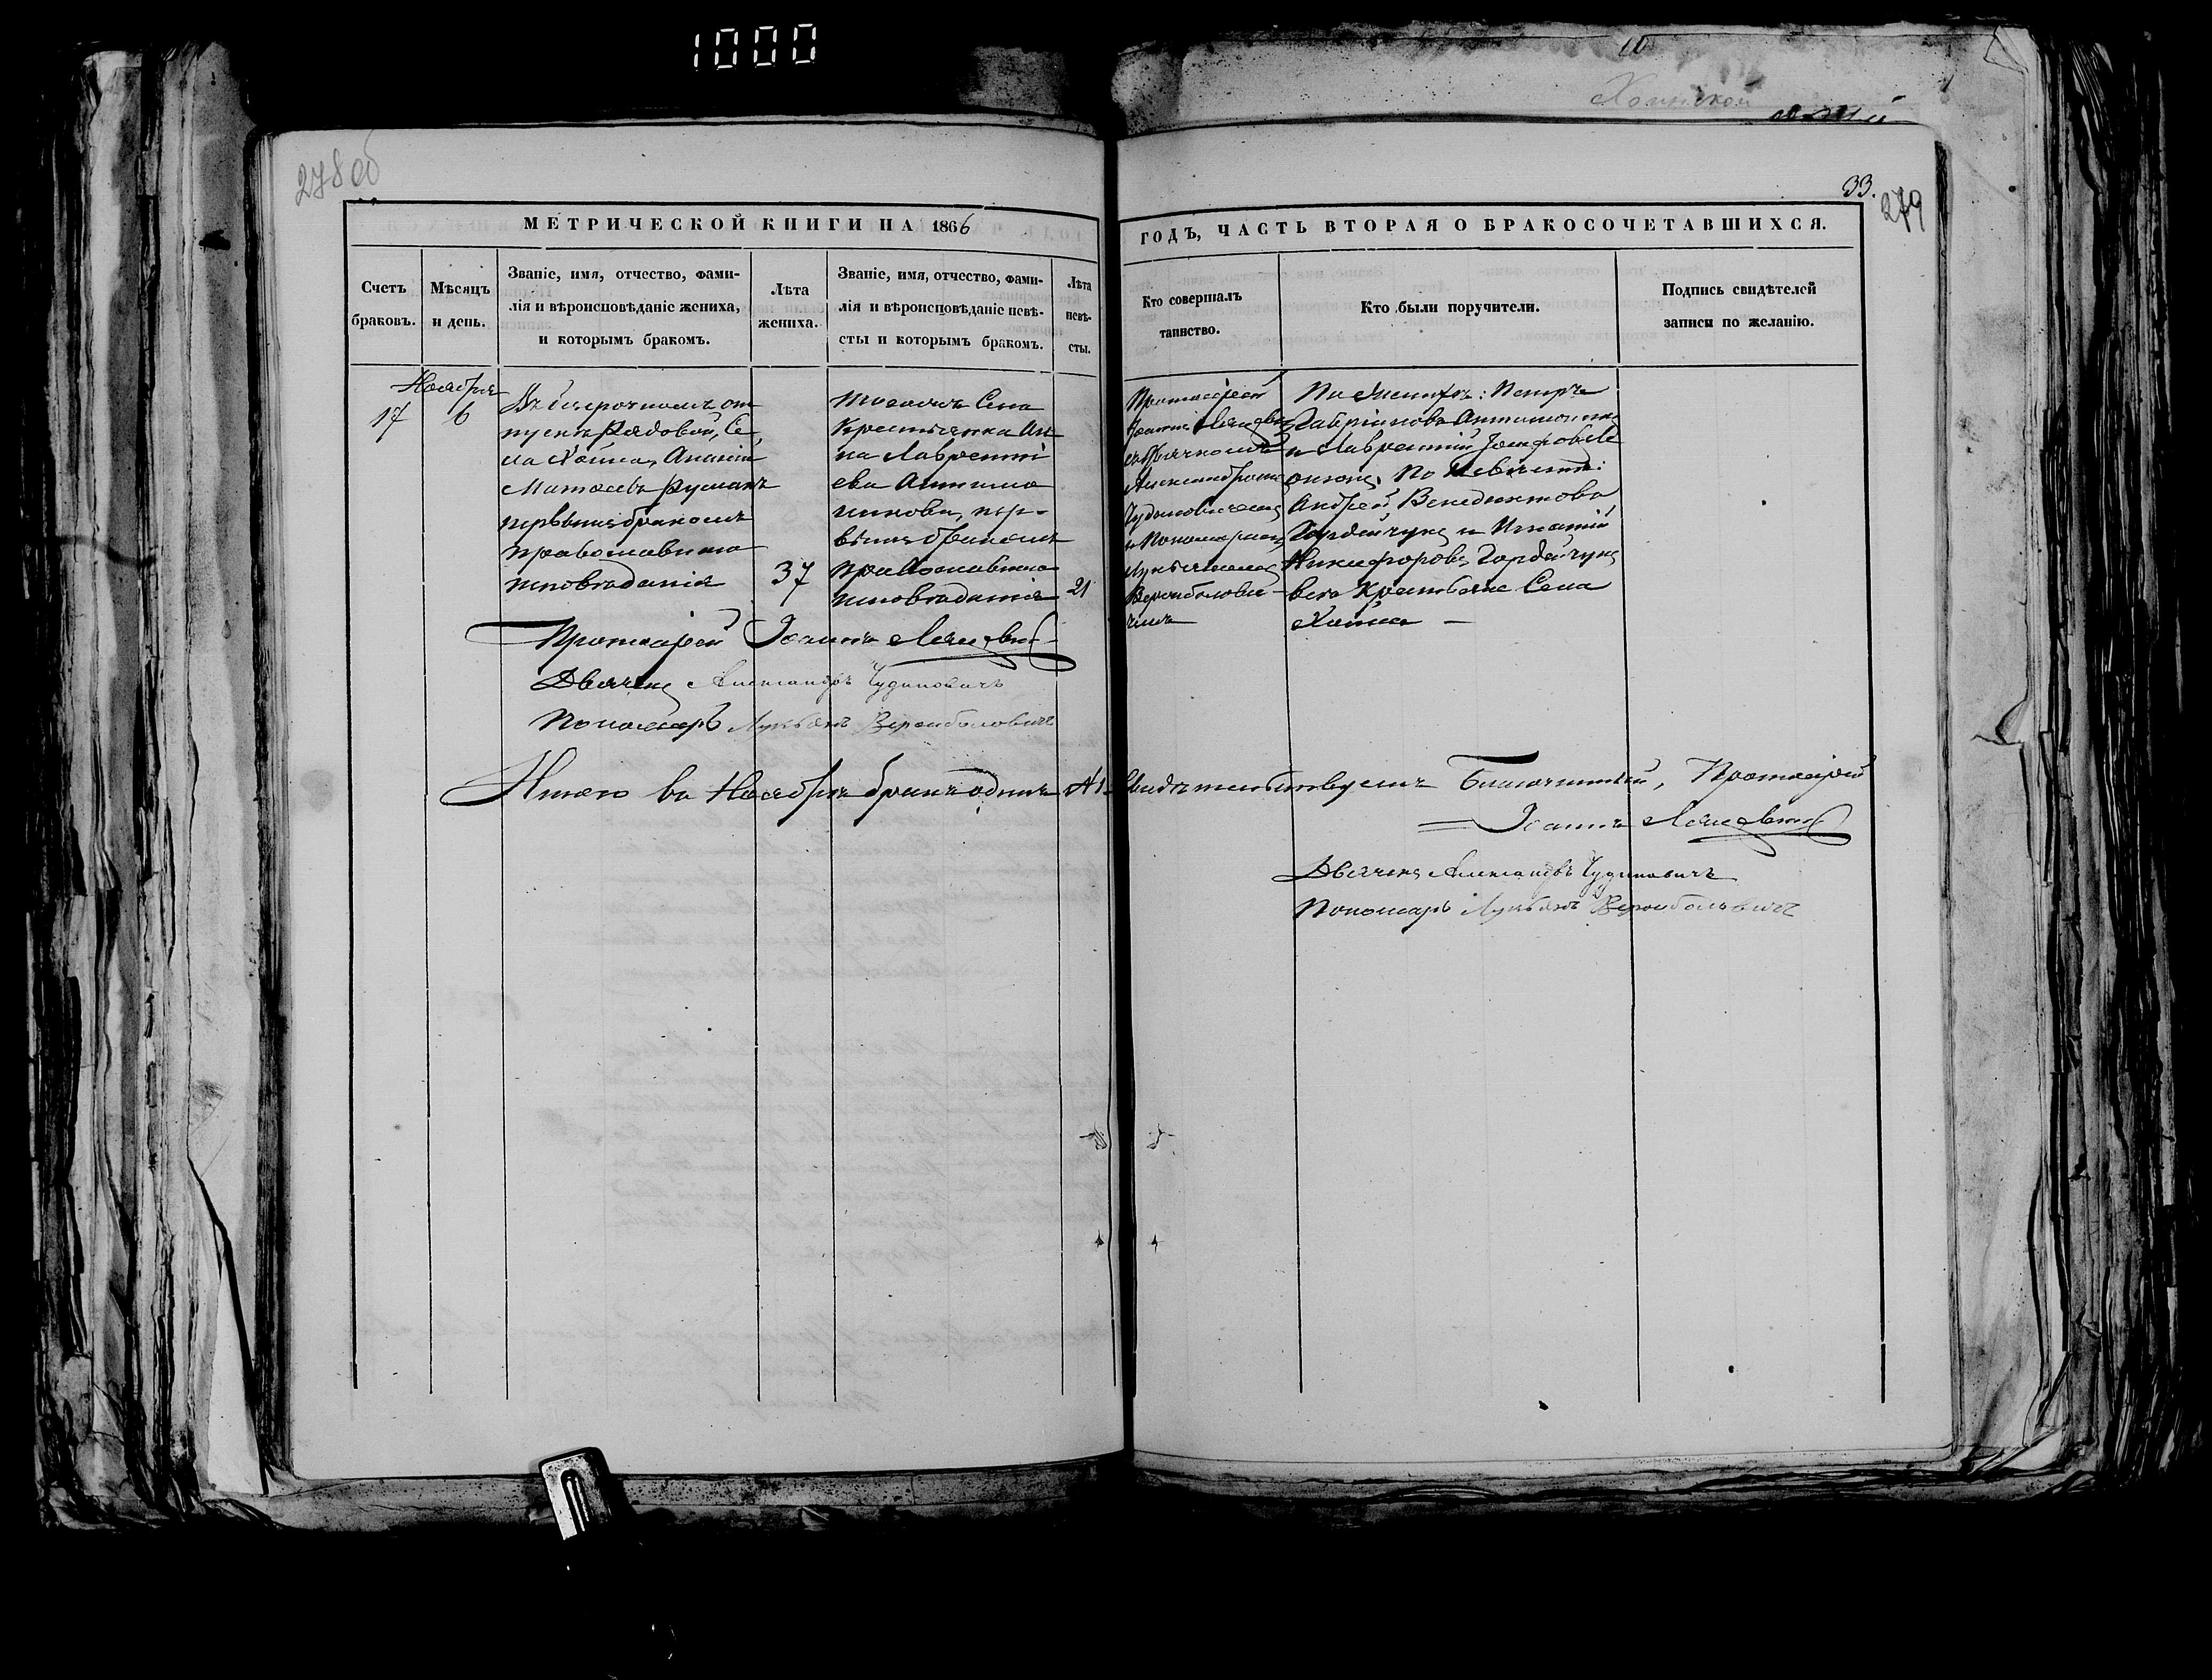 1000
278 об
33.
279
МЕТРИЧЕСКОЙ КНИГИ НА 1866
ГОДЪ, ЧАСТЬ ВТОРАЯ О БРАКОСОЧЕТАВШИХСЯ.
Счетъ
браковъ.
Мѣсяцъ
и день.
Званіе, имя, отчество, фами-
лія и вѣроисповѣданіе жениха,
и которымъ бракомъ.
Лѣта
жениха.
Званіе, имя, отчество, фами-
лія и вѣроисповѣданіе невѣ-
сты и которымъ бракомъ.
Лѣта
невѣ-
сты.
Кто совершалъ
таинство.
Кто были поручители.
Подпись свидѣтелей
записи по желанію.
Ноября
17
6
Въ безсрочномъ от
пуску Рядовой, Се
ла
Матѳеевъ
первымъ бракомъ
православнаго
исповѣданія
37
тогожъ Села
Крестьянка Ан
на Лавренті
ева Антимо
никова, пер-
вымъ бракомъ
православнаго
исповѣданія
21
Протоіерей
Іоаннъ
съ Дьячкомъ
Александромъ
и Пономаремъ
Лукьяномъ
чемъ
По женихѣ: Петръ
и Лаврентій
По невѣстѣ:
Андрей Венедиктовъ
Гордейчукъ и Игнатій
Никифоровъ Гордейчукъ
всѣ Крестьяне Села
Протоіерей Іоаннъ
Дьячекъ Александръ
Пономарь Лукьянъ
Итого въ Ноябрѣ бракъ одинъ №1
Свидѣтельствуемъ Благочинный, Протоіерей
Іоаннъ
Дьячекъ Александръ
Пономарь Лукьянъ